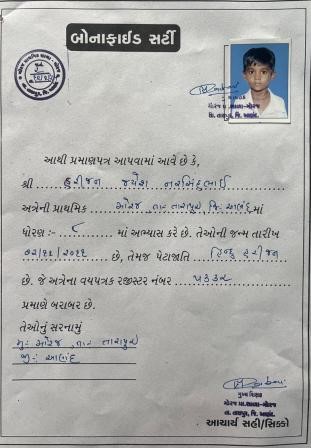 બોનાફાઈડ સર્ટી
આચાર્ય
મોરજ પ્રા.શાળા-મોરજ
તા. તારાપુર, જિ. આણંદ.
આથી પ્રમાણપત્ર આપવામાં આવે છે કે,
શ્રી હરીજન જયેશ નરસિંહભાઈ
અત્રેની પ્રાથમિક મોરજ, તા: તારાપુર, જિ: આણંદ માં
ધોરણ :- ૮ માં અભ્યાસ કરે છે. તેઓની જન્મ તારીખ
છે, તેમજ પેટાજાતિ હિન્દુ હરીજન
છે. જે અત્રેના વયપત્રક રજીસ્ટર નંબર
પ્રમાણે બરાબર છે.
તેઓનું સરનામું
મુ: મોરજ, તા: તારાપુર
જી: આણંદ
મુખ્ય શિક્ષક
મોરજ પ્રા.શાળા-મોરજ
તા. તારાપુર, જિ. આણંદ.
આચાર્ય સહી/સિક્કો